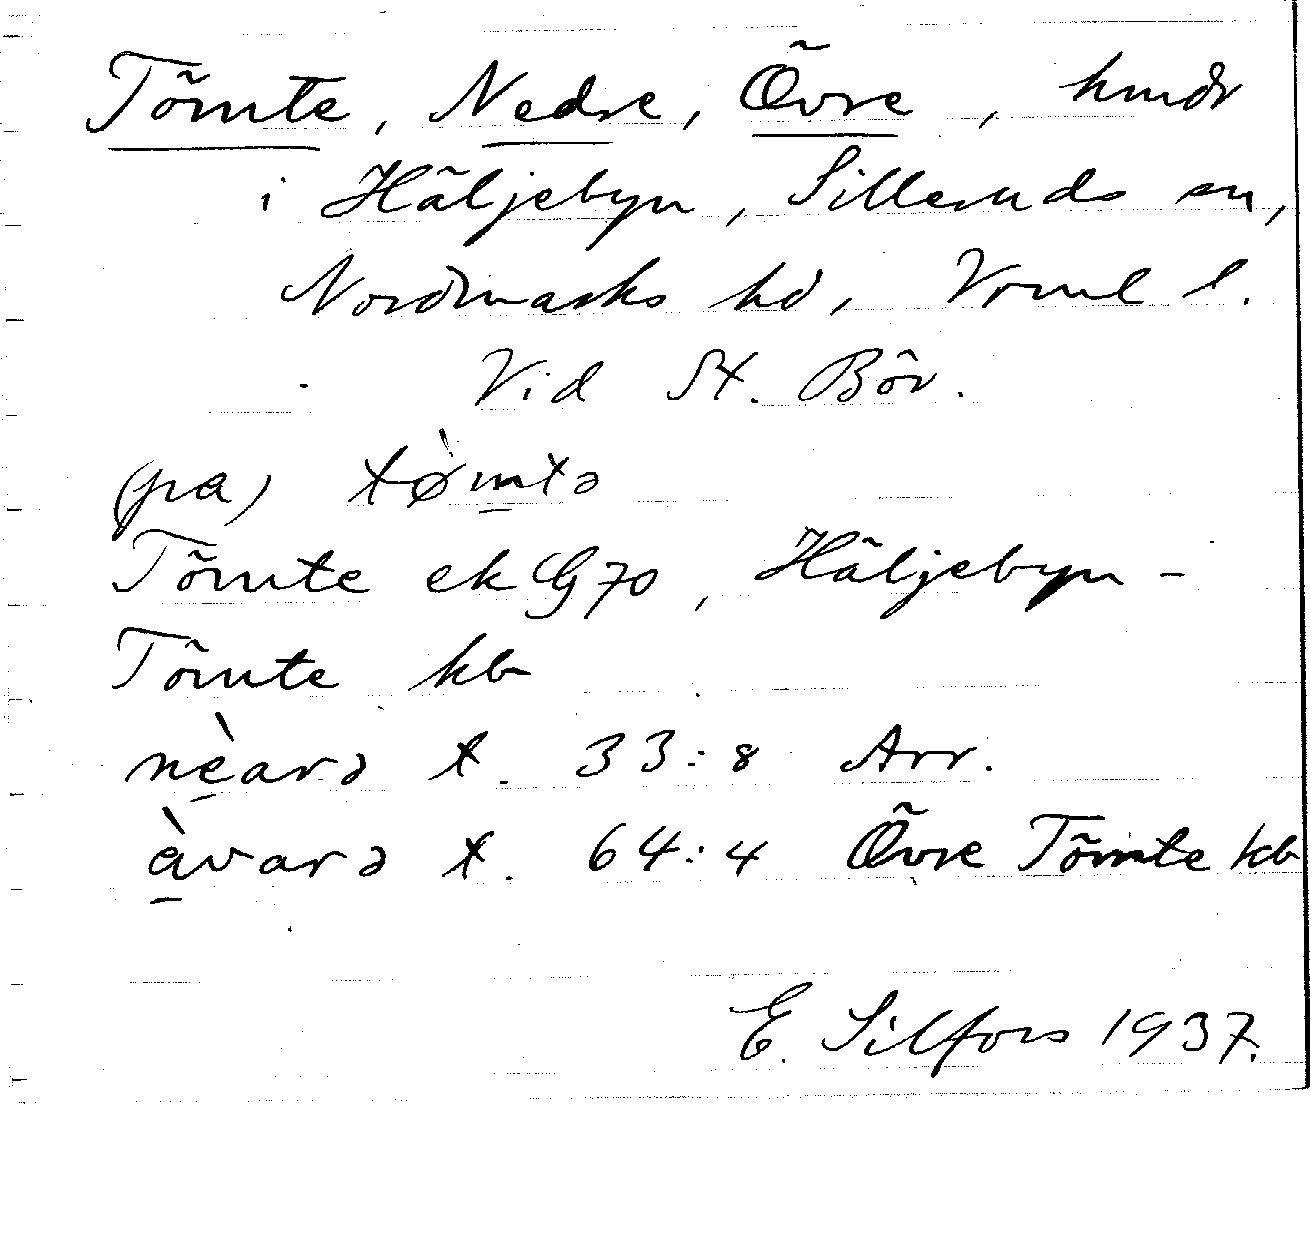 Tömte, Nedre, Övre, hmdr
i Häljebyn, Silleruds sn,
Nordmarks hd, Vrml l.
Vid St. Bör.
(pa) tø̀mtə
Tömte ekG70, Häljebyn-
Tömte kb
nèarə t. 33:8 Arr.
àvarə t. 64:4 Övre Tömte kb
E. Silfors 1937.